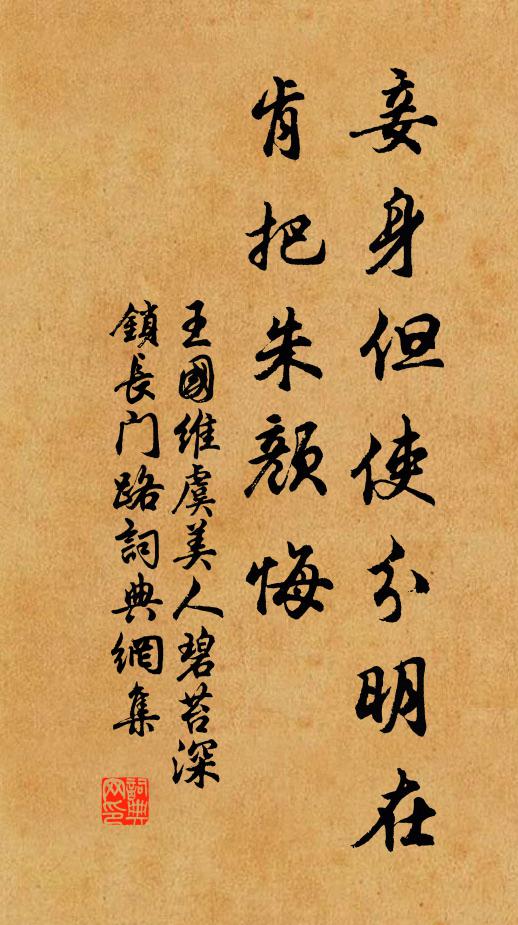 妾身但使分明在
肯把朱顏悔
王國維虞美人碧苔深
鎖長门路詞典網集
詞典
网印